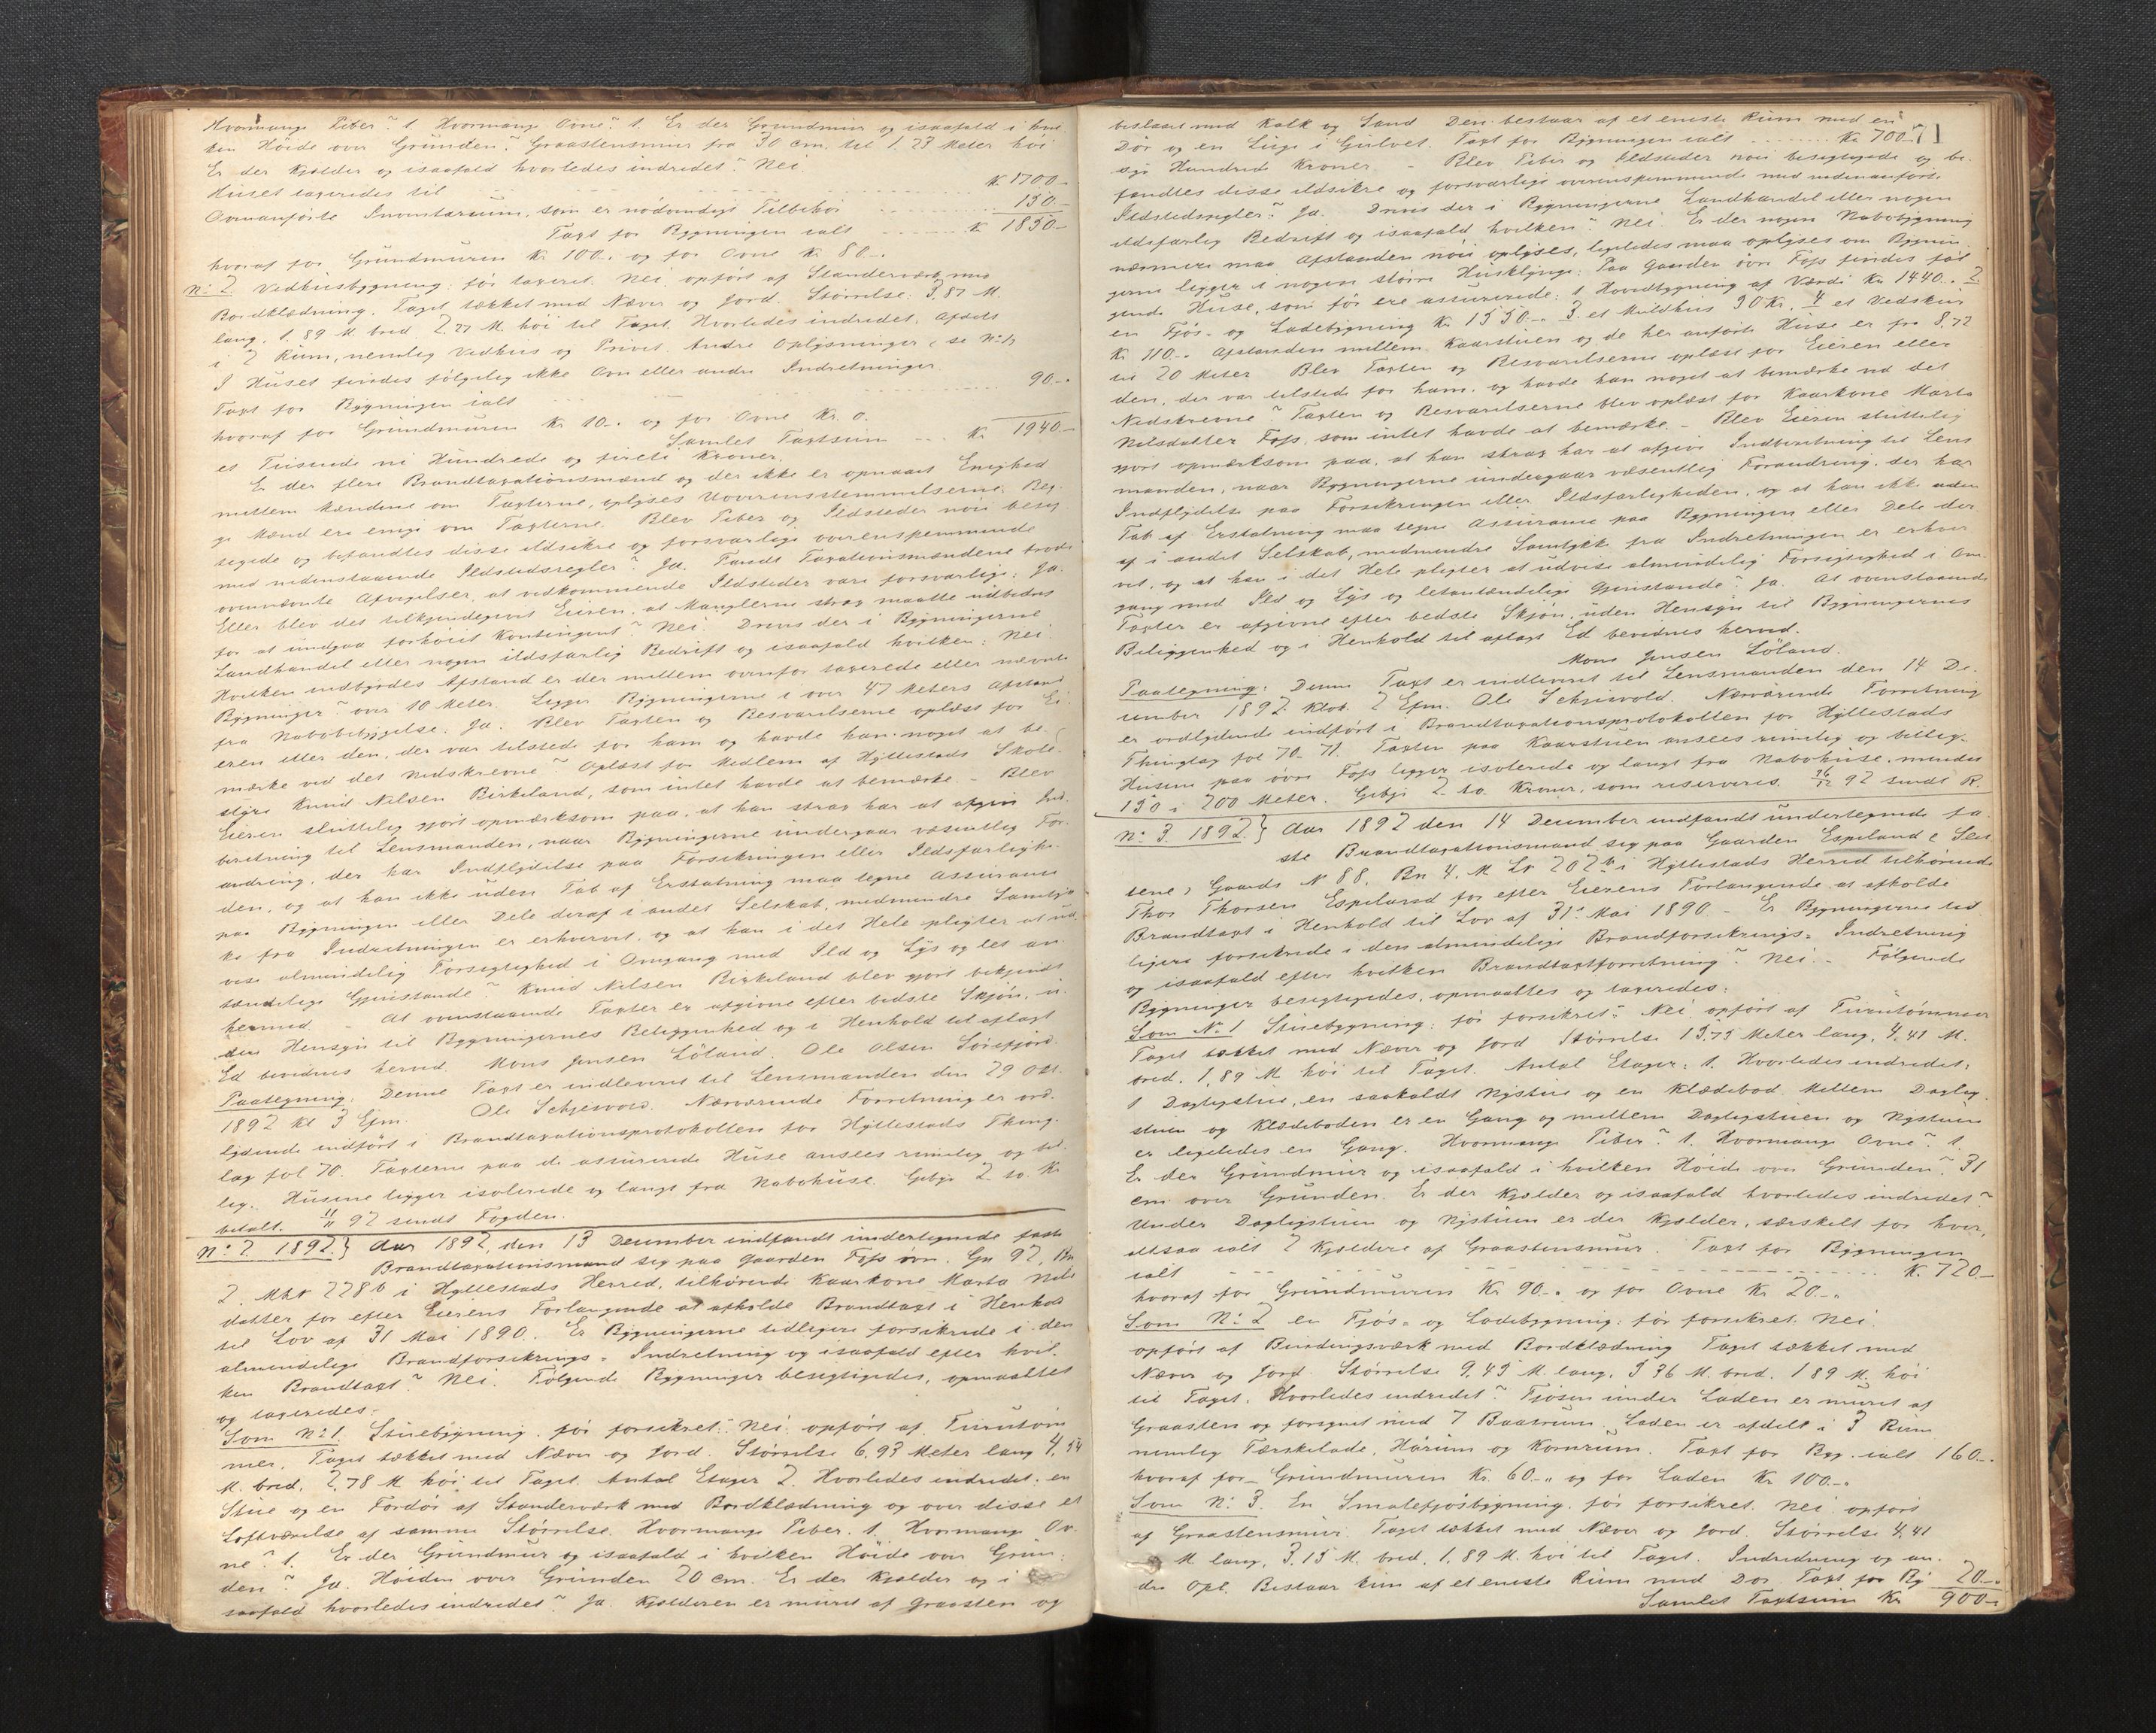 Hvormange Piber? 1. Hvormange Ovne? 1. Er der Grundmur og isaafald i hvil-
ken Höide over Grunden? Graastensmur fra 30 cm. til 1.23 Meter höi
Er der Kjelder og isaafald hvorledes indredet? Nei.
Huset taxeredes til Kr. 1700-
Ovenanförte Inventarium, som er nödvendigt Tilbehör 150-
Taxt for Bygningen ialt Kr 1850-
hvoraf for Grundmuren Kr 100-. og for Ovne Kr 80-.
No 2 Vedhusbygning: för taxeret. Nei. opfört af Standerværk med
Bordklædning. Taget tækket med Næver og Jord. Störrelse: 3,87 M.
lang, 1.89 M. bred, 2.27 M. höi til Taget. Hvorledes indredet: Afdelt
i 2 Rum, nemlig Vedhus og Privet. Andre Oplysninger (se No 1)
I Huset findes fölgelig ikke Ovn eller andre Indretninger
Taxt for Bygningen ialt 90-.
hvoraf for Grundmuren Kr 10-. og for Ovne Kr. 0.
Samlet Taxtsum Kr 1940-
et Tusende ni Hundrede og fireti Kroner.
Er der flere Brandtaxationsmænd og der ikke er opnaaet Enighed
mellem Mændene om Taxterne, oplyses Uoverensstemmelserne. Beg-
ge Mænd ere enige om Taxterne. Blev Piber og Ildsteder nöie besig-
tigede og befandtes disse ildsikre og forsvarlige overenstemmende
med nedenstaaende Ildstedsregler? Ja. Fandt Taxationsmændene trods
ovennævnte Afvigelser, at vedkommende Ildsteder vare forsvarlige: Ja.
Eller blev det tilkjendegivet Eieren, at Manglerne strax maatte udbedres
for at undgaa forhöiet Kontingent? Nei. Drives der i Bygningerne
Landhandel eller nogen ildsfarlig Bedrift og isaafald hvilken: Nei.
Hvilken indbyrdes Afstand er der mellem ovenfor taxerede eller nævnte
Bygninger? over 10 Meter. Ligger Bygningerne i over 47 Meters Afstand
fra Nabobebyggelse: Ja. Blev Taxten og Besvarelserne oplæst for Ei-
eren eller den, der var tilstede for ham og havde han noget at be-
mærke ved det Nedskrevne? Oplæst for Medlem af Hyllestads Skole-
styre Knud Nilsen Birkeland, som intet havde at bemærke. - Blev
Eieren sluttelig gjort opmærksom paa, at han strax har at afgive Ind-
beretning til Lensmanden, naar Bygningerne undergaar væsentlig For-
andring, der har Indflydelse paa Forsikringen eller Ildsfarlighe-
den, og at han ikke uden Tab af Erstatning maa tegne Assurance
paa Bygningen eller Dele deraf i andet Selskab, medmindre Samtyk-
ke fra Indretningen er erhvervet, og at han i det Hele pligter at ud-
vise almindelig Forsigtighed i Omgang med Ild og Lys og let an-
tændelige Gjenstande? Knud Nilsen Birkeland blev gjort bekjendt
hermed. - At ovenstaaende Taxter er afgivne efter bedste Skjön, u-
den Hensyn til Bygningernes Beliggenhed og i Henhold til aflagt
Ed bevidnes herved. Mons Jensen Löland. Ole Olsen Sörefjord.
Paategning: Denne Taxt er indleveret til Lensmanden den 29 Okt.
1892 Kl 3 Efm. Ole Schjesvold. Nærværende Forretning er ord-
lydende indfört i Brandtaxationsprotokollen for Hyllestads Thing-
lag fol 70. Taxterne paa de assurerede Huse ansees rimelig og bil-
lig. Husene ligger isolerede og langt fra Nabohuse. Gebyr 2 to Kr
betalt. 11/11 92 sendt Fogden.
No 2 1892.} Aar 1892, den 13 December indfandt undertegnede faste
Brandtaxationsmand sig paa Gaarden Foss övre. Gn 92, Bn
2. MLN 228b i Hyllestads Herred, tilhörende Kaarkone Marta Nils-
datter for efter Eierens Forlangende at afholde Brandtaxt i Henhold
til Lov af 31 Mai 1890. Er Bygningerne tidligere forsikrede i den
almindelige Brandforsikrings-Indretning og isaafald efter hvil-
ken Brandtaxt? Nei. Fölgende Bygninger besigtigedes, opmaaltes
og taxeredes:
Som No 1. Stuebygning. för forsikret: Nei. opfört af Furutöm-
mer. Taget tækket med Næver og Jord. Störrelse 6,93 Meter lang 4,54
M. bred. 2,78 M. höi til Taget. Antal Etager 2. Hvorledes indredet: en
Stue og en Fordör af Standerværk med Bordklædning og over disse et
Loftværelse af samme Störrelse. Hvormange Piber. 1. Hvormange Ov-
ne? 1. Er der Grundmur og isaafald i hvilken Höide over Grun-
den? Ja. Höiden over Grunden 20 cm. Er der Kjelder og i-
saafald hvorledes indredet? Ja. Kjelderen er muret af Graasten og
71
beslaaet med Kalk og Sand. Den bestaar af et eneste Rum med en
Dör og en Luge i Gulvet. Taxt for Bygningen ialt Kr 700-
syv Hundrede Kroner. - Blev Piber og Ildsteder nöie besigtigede og be-
fandtes disse ildsikre og forsvarlige overenstemmende med nedenanförte
Ildstedsregler? Ja. Drives der i Bygningerne Landhandel eller nogen
ildsfarlig Bedrift og isaafald hvilken? Nei. Er der nogen Nabobygning
nærmere maa Afstanden nöie oplyses, ligeledes maa oplyses om Bygnin-
gerne ligger i nogen större Husklynge: Paa Gaarden övre Foss findes föl-
gende Huse, som för ere assurerede: 1 Hovedbygning af Værdi Kr 1440-. 2
en Fjös- og Ladebygning Kr 1550-. 3. et Kuldhus 30 Kr. 4 et Vedskur
Kr 110-. Afstanden mellem Kaarstuen og de her anförte Huse er fra 8,72
til 20 Meter. Blev Taxten og Besvarelserne oplæst for Eieren eller
den, der var tilstede for ham, og havde han noget at bemærke ved det
Nedskrevne? Taxten og Besvarelserne blev oplæst for Kaarkone Marta
Nilsdatter Foss, som intet havde at bemærke. - Blev Eieren sluttelig
gjort opmærksom paa, at han strax har at afgive Indberetning til Lens-
manden, naar Bygningerne undergaar væsentlig Forandring, der har
Indflydelse paa Forsikringen eller Ildsfarligheden, og at han ikke uden
Tab af Erstatning maa tegne Assurance paa Bygningen eller Dele der-
af i andet Selskab, medmindre Samtykke fra Indretningen er erhver-
vet, og at han i det Hele pligter at udvise almindelig Forsigtighed i Om-
gang med Ild og Lys og letantændelige Gjenstande? Ja. At ovenstaaende
Taxter er afgivne efter bedste Skjön, uden Hensyn til Bygningernes
Beliggenhed og i Henhold til aflagt Ed bevidnes herved.
Mons Jensen Löland.
Paategning: Denne Taxt er indleveret til Lensmanden den 14 De-
cember 1892 Klok. 2 Efm. Ole Schjesvold. Nærværende Forretning
er ordlydende indfört i Brandtaxationsprotokollen for Hyllestads
Thinglag fol 70-71. Taxten paa Kaarstuen ansees rimelig og billig.
Husene paa övre Foss ligger isolerede og langt fra Nabohuse, mindst
150 à 200 Meter. Gebyr 2 to Kroner, som reserveres. 16/12 92 sendt R.
No 3. 1892.} Aar 1892 den 14 December indfandt undertegnede fa-
ste Brandtaxationsmand sig paa Gaarden Espeland (Slet-
tene) Gaards N 88. Bn 4. M Lr 202b i Hyllestads Herred tilhörende
Thor Thorsen Espeland for efter Eierens Forlangende at afholde
Brandtaxt i Henhold til Lov af 31te Mai 1890. - Er Bygningerne tid-
ligere forsikrede i den almindelige Brandforsikrings-Indretning
og isaafald efter hvilken Brandtaxtforretning? Nei. - Fölgende
Bygninger besigtigedes, opmaaltes og taxeredes:
Som No 1 Stuebygning: för forsikret: Nei. opfört af Furutömmer
Taget tækket med Næver og Jord. Störrelse 13,73 Meter lang, 4,41 M.
bred, 1,89 M höi til Taget. Antal Etager: 1. Hvorledes indredet:
1 Dagligstue, en saakaldt Nystue og en Klædebod. Mellem Daglig-
stuen og Klædeboden er en Gang og mellem Dagligstuen og Nystuen
er ligeledes en Gang. Hvormange Piber? 1. Hvormange Ovne? 1.
Er der Grundmur og isaafald i hvilken Höide over Grunden? 31
cm over Grunden. Er der Kjelder og isaafald hvorledes indredet?
Under Dagligstuen og Nystuen er der Kjelder, særskilt for hver,
altsaa ialt 2 Kjeldere af Graastensmur. Taxt for Bygningen
ialt Kr. 720-
hvoraf for Grundmuren Kr 90-. og for Ovne Kr 20-.
Som No 2 en Fjös- og Ladebygning: för forsikret. Nei.
opfört af Bindingsværk med Bordklædning Taget tækket med
Næver og Jord. Störrelse 9,45 M. lang, 5 36 M. bred. 1 89 M. höi
til Taget. Hvorledes indredet? Fjösen under Laden er muret af
Graasten og forsynet med 7 Baasrum. Laden er afdelt i 3 Rum
nemlig Tærskelade, Hörum og Kornrum. Taxt for Byg. ialt 160-.
hvoraf for Grundmuren Kr. 60-. og for Laden Kr 100-.
Som No 3. En Smalefjösbygning. för forsikret. Nei. opfört
af Graastensmur. Taget tækket med Næver og Jord. Störrelse 4,41
M. lang, 3,15 M. bred, 1,89 M. höi til Taget. Indredning og an-
dre Opl. Bestaar kun af et eneste Rum med Dör. Taxt for By 20-.
Samlet Taxtsum Kr 900-.